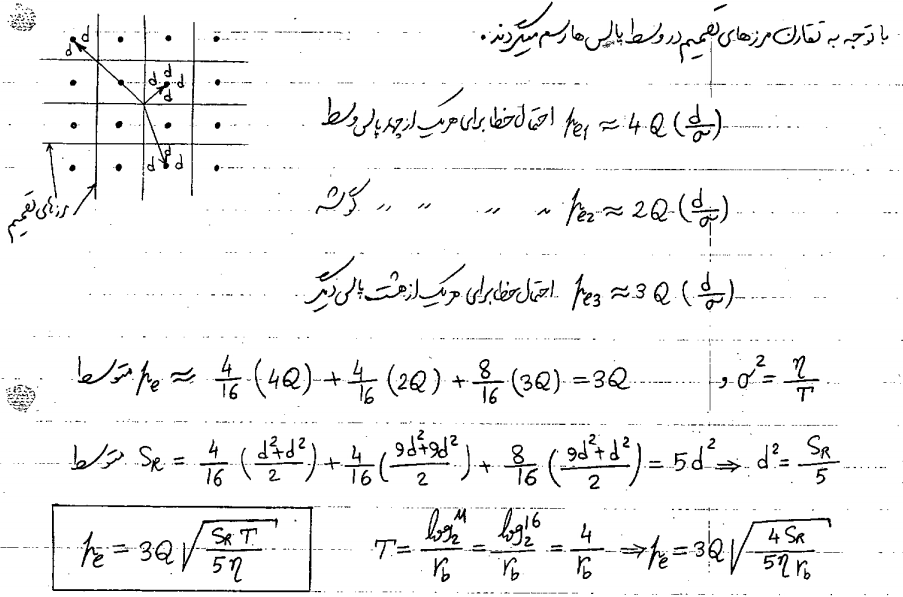 با توجه به تقارن مرزهای تصمیم در وسط پالس ها رسم میگردند.
d d d d d d d d d
مرزهای تصمیم
احتمال خطا برای هریک از چهار پالس وسط pe1 ≈ 4Q(d/σ)
〃 〃 〃 〃 گوشه pe2 ≈ 2Q(d/σ)
احتمال خطا برای هریک از هشت پالس دیگر pe3 ≈ 3Q(d/σ)
متوسط pe ≈ 4/16 (4Q) + 4/16 (2Q) + 8/16 (3Q) = 3Q , σ² = η/T
متوسط SR = 4/16 ((d²+d²)/2) + 4/16 ((9d²+9d²)/2) + 8/16 ((9d²+d²)/2) = 5d² ⇒ d² = SR/5
pe = 3Q√(SR T/5η) T = log₂M/rb = log₂16/rb = 4/rb ⇒ pe = 3Q√(4SR/5η rb)